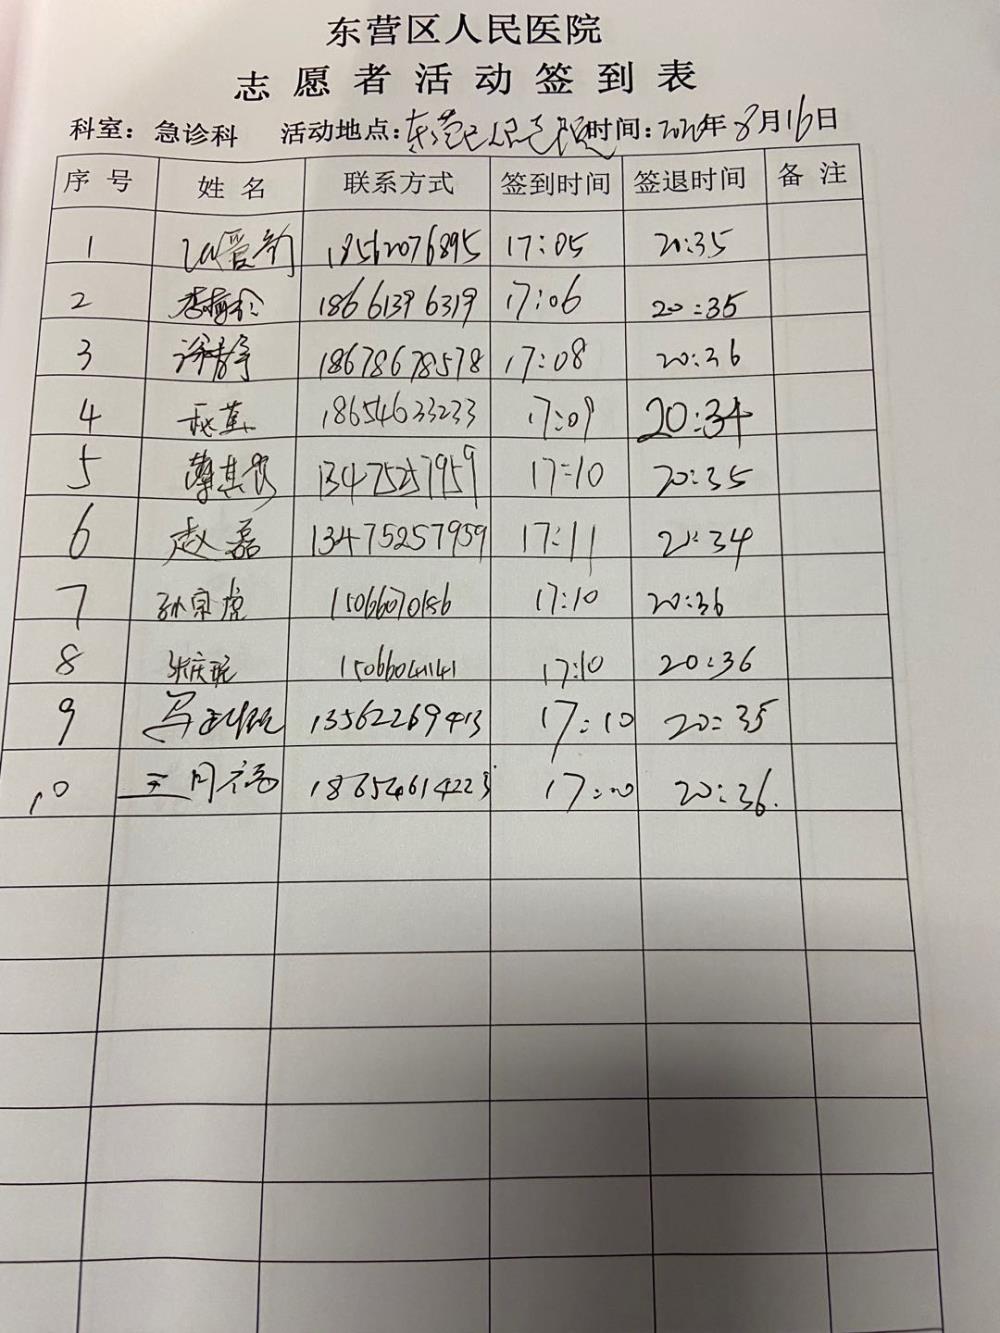 东营区人民医院
志愿者活动签到表
科室：急诊科 活动地点：东营区人民医院 时间：2020年8月16日
序号 姓名 联系方式 签到时间 签退时间 备注
1 18562076895 17:05 20:35
2 18661396319 17:06 20:35
3 徐静 18678678578 17:08 20:36
4 18654633233 17:09 20:34
5 13475257959 17:10 20:35
6 赵磊 13475257959 17:11 20:34
7 孙宗虎 15066070186 17:10 20:36
8 15066041141 17:10 20:36
9 13562269413 17:10 20:35
10 18654614223 20:36.